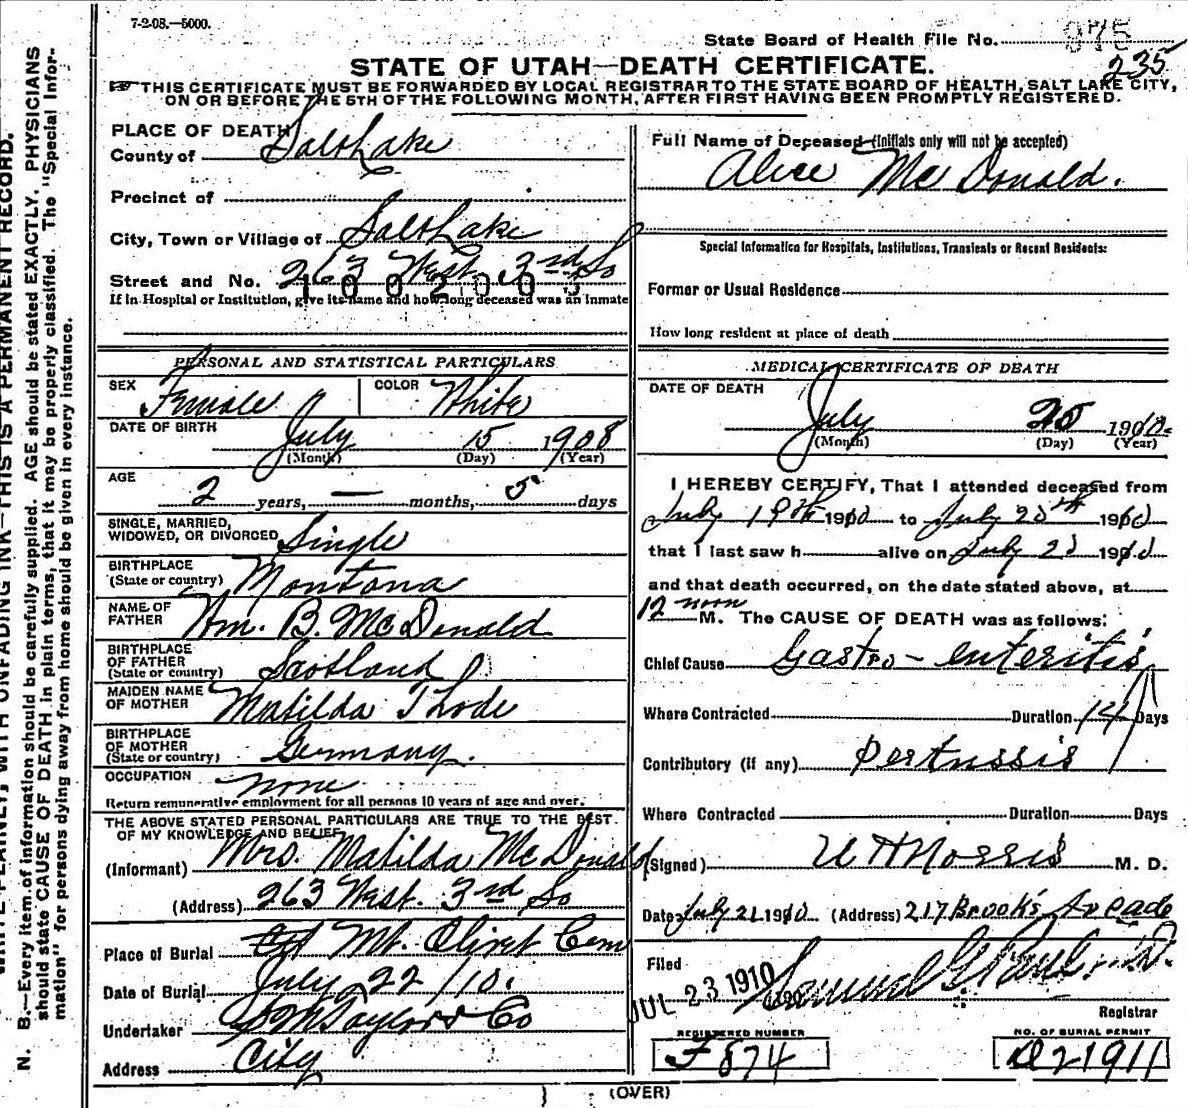 7-2-08.—5000.
State Board of Health File No. 975
235
STATE OF UTAH—DEATH CERTIFICATE.
THIS CERTIFICATE MUST BE FORWARDED BY LOCAL REGISTRAR TO THE STATE BOARD OF HEALTH, SALT LAKE CITY,
ON OR BEFORE THE 5TH OF THE FOLLOWING MONTH, AFTER FIRST HAVING BEEN PROMPTLY REGISTERED.
WITH UNFADING INK—THIS IS A PERMANENT RECORD.
N. B.—Every item of information should be carefully supplied. AGE should be stated EXACTLY. PHYSICIANS
should state CAUSE OF DEATH in plain terms, that it may be properly classified. The "Special Infor-
mation" for persons dying away from home should be given in every instance.
PLACE OF DEATH
County of Salt Lake
Precinct of
City, Town or Village of Salt Lake
Street and No. 263 West. 3rd So
If in Hospital or Institution, give its name and how long deceased was an Inmate
PERSONAL AND STATISTICAL PARTICULARS
SEX Female COLOR White
DATE OF BIRTH July 15 1908
(Month) (Day) (Year)
AGE 2 years, — months, 5 days
SINGLE, MARRIED,
WIDOWED, OR DIVORCED Single
BIRTHPLACE
(State or country) Montana
NAME OF
FATHER Wm. B. McDonald
BIRTHPLACE
OF FATHER
(State or country) Scotland
MAIDEN NAME
OF MOTHER Matilda Thode
BIRTHPLACE
OF MOTHER
(State or country) Germany.
OCCUPATION none
Return remunerative employment for all persons 10 years of age and over.
THE ABOVE STATED PERSONAL PARTICULARS ARE TRUE TO THE BEST
OF MY KNOWLEDGE AND BELIEF
(Informant) Mrs. Matilda McDonald
(Address) 263 West. 3rd So
Place of Burial Mt. Olivet Cem
Date of Burial July 22/10.
Undertaker S M Taylor & Co
Address City
Full Name of Deceased (Initials only will not be accepted)
Alice McDonald.
Special Information for Hospitals, Institutions, Transients or Recent Residents:
Former or Usual Residence
How long resident at place of death
MEDICAL CERTIFICATE OF DEATH
DATE OF DEATH
July 20 1910.
(Month) (Day) (Year)
I HEREBY CERTIFY, That I attended deceased from
July 19th 1910 to July 20th 1910
that I last saw h alive on July 20 1910
and that death occurred, on the date stated above, at
12 noon M. The CAUSE OF DEATH was as follows:
Chief Cause Gastro-enteritis
Where Contracted Duration 14 Days
Contributory (if any) Pertussis
Where Contracted Duration Days
(Signed) U H Norris M. D.
Date July 21 1910 (Address) 217 Brooks Arcade
Filed
JUL 23 1910 Samuel G. Paul M.D.
Registrar
REGISTERED NUMBER
F 874
NO. OF BURIAL PERMIT
D 21911
(OVER)